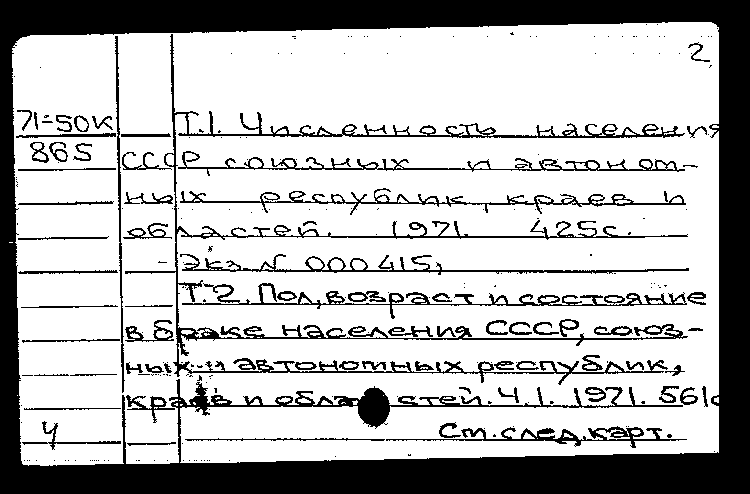 2
71-50к Т.1. Численность населения
865 СССР, союзных и автоном-
ных республик, краев и
областей. 1971. 425с.
- Экз. N 000415;
Т.2. Пол, возраст и состояние
в браке населения СССР, союз-
ных и автономных республик,
краев и областей. Ч.1. 1971. 561с
4 См. след. карт.